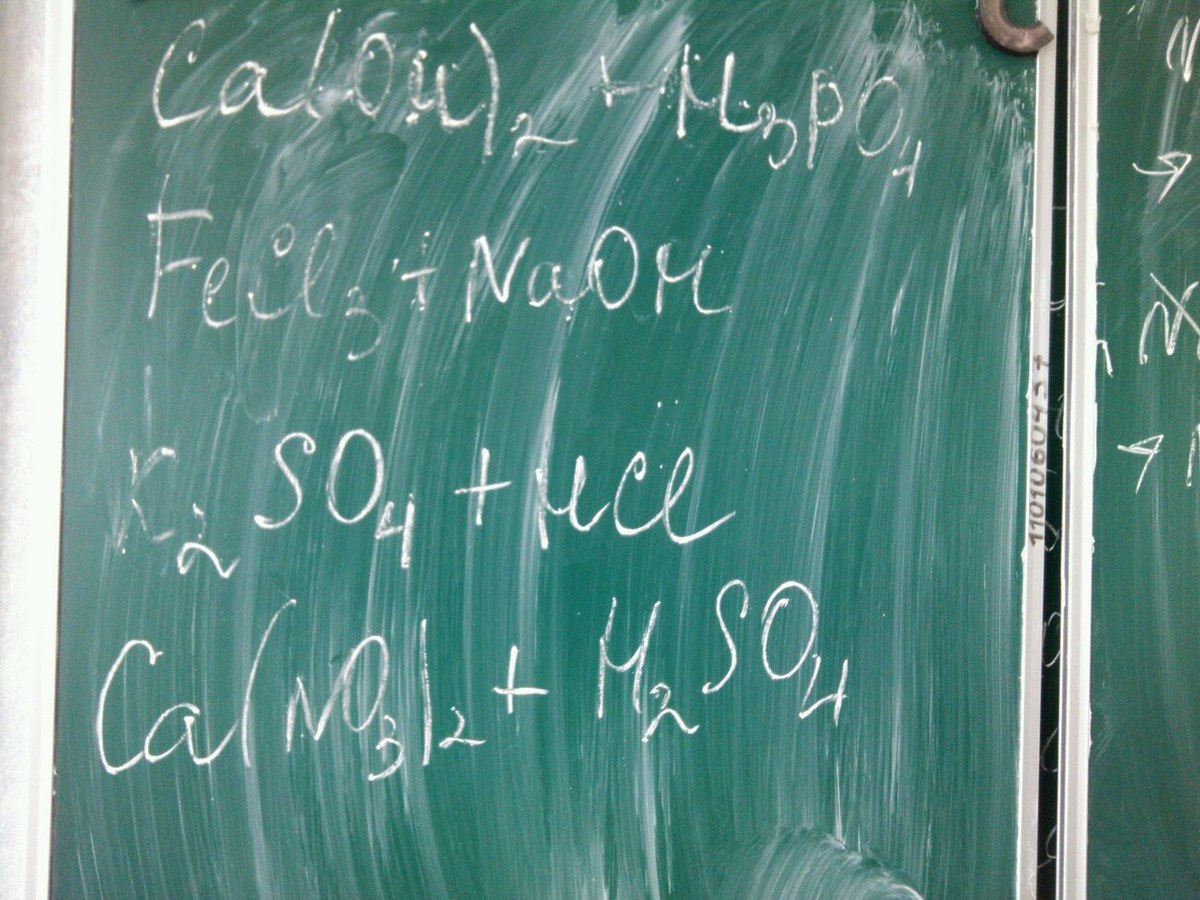 Ca(OH)₂ + H₃PO₄
FeCl₃ + NaOH
K₂SO₄ + HCl
Ca(NO₃)₂ + H₂SO₄
1101060437